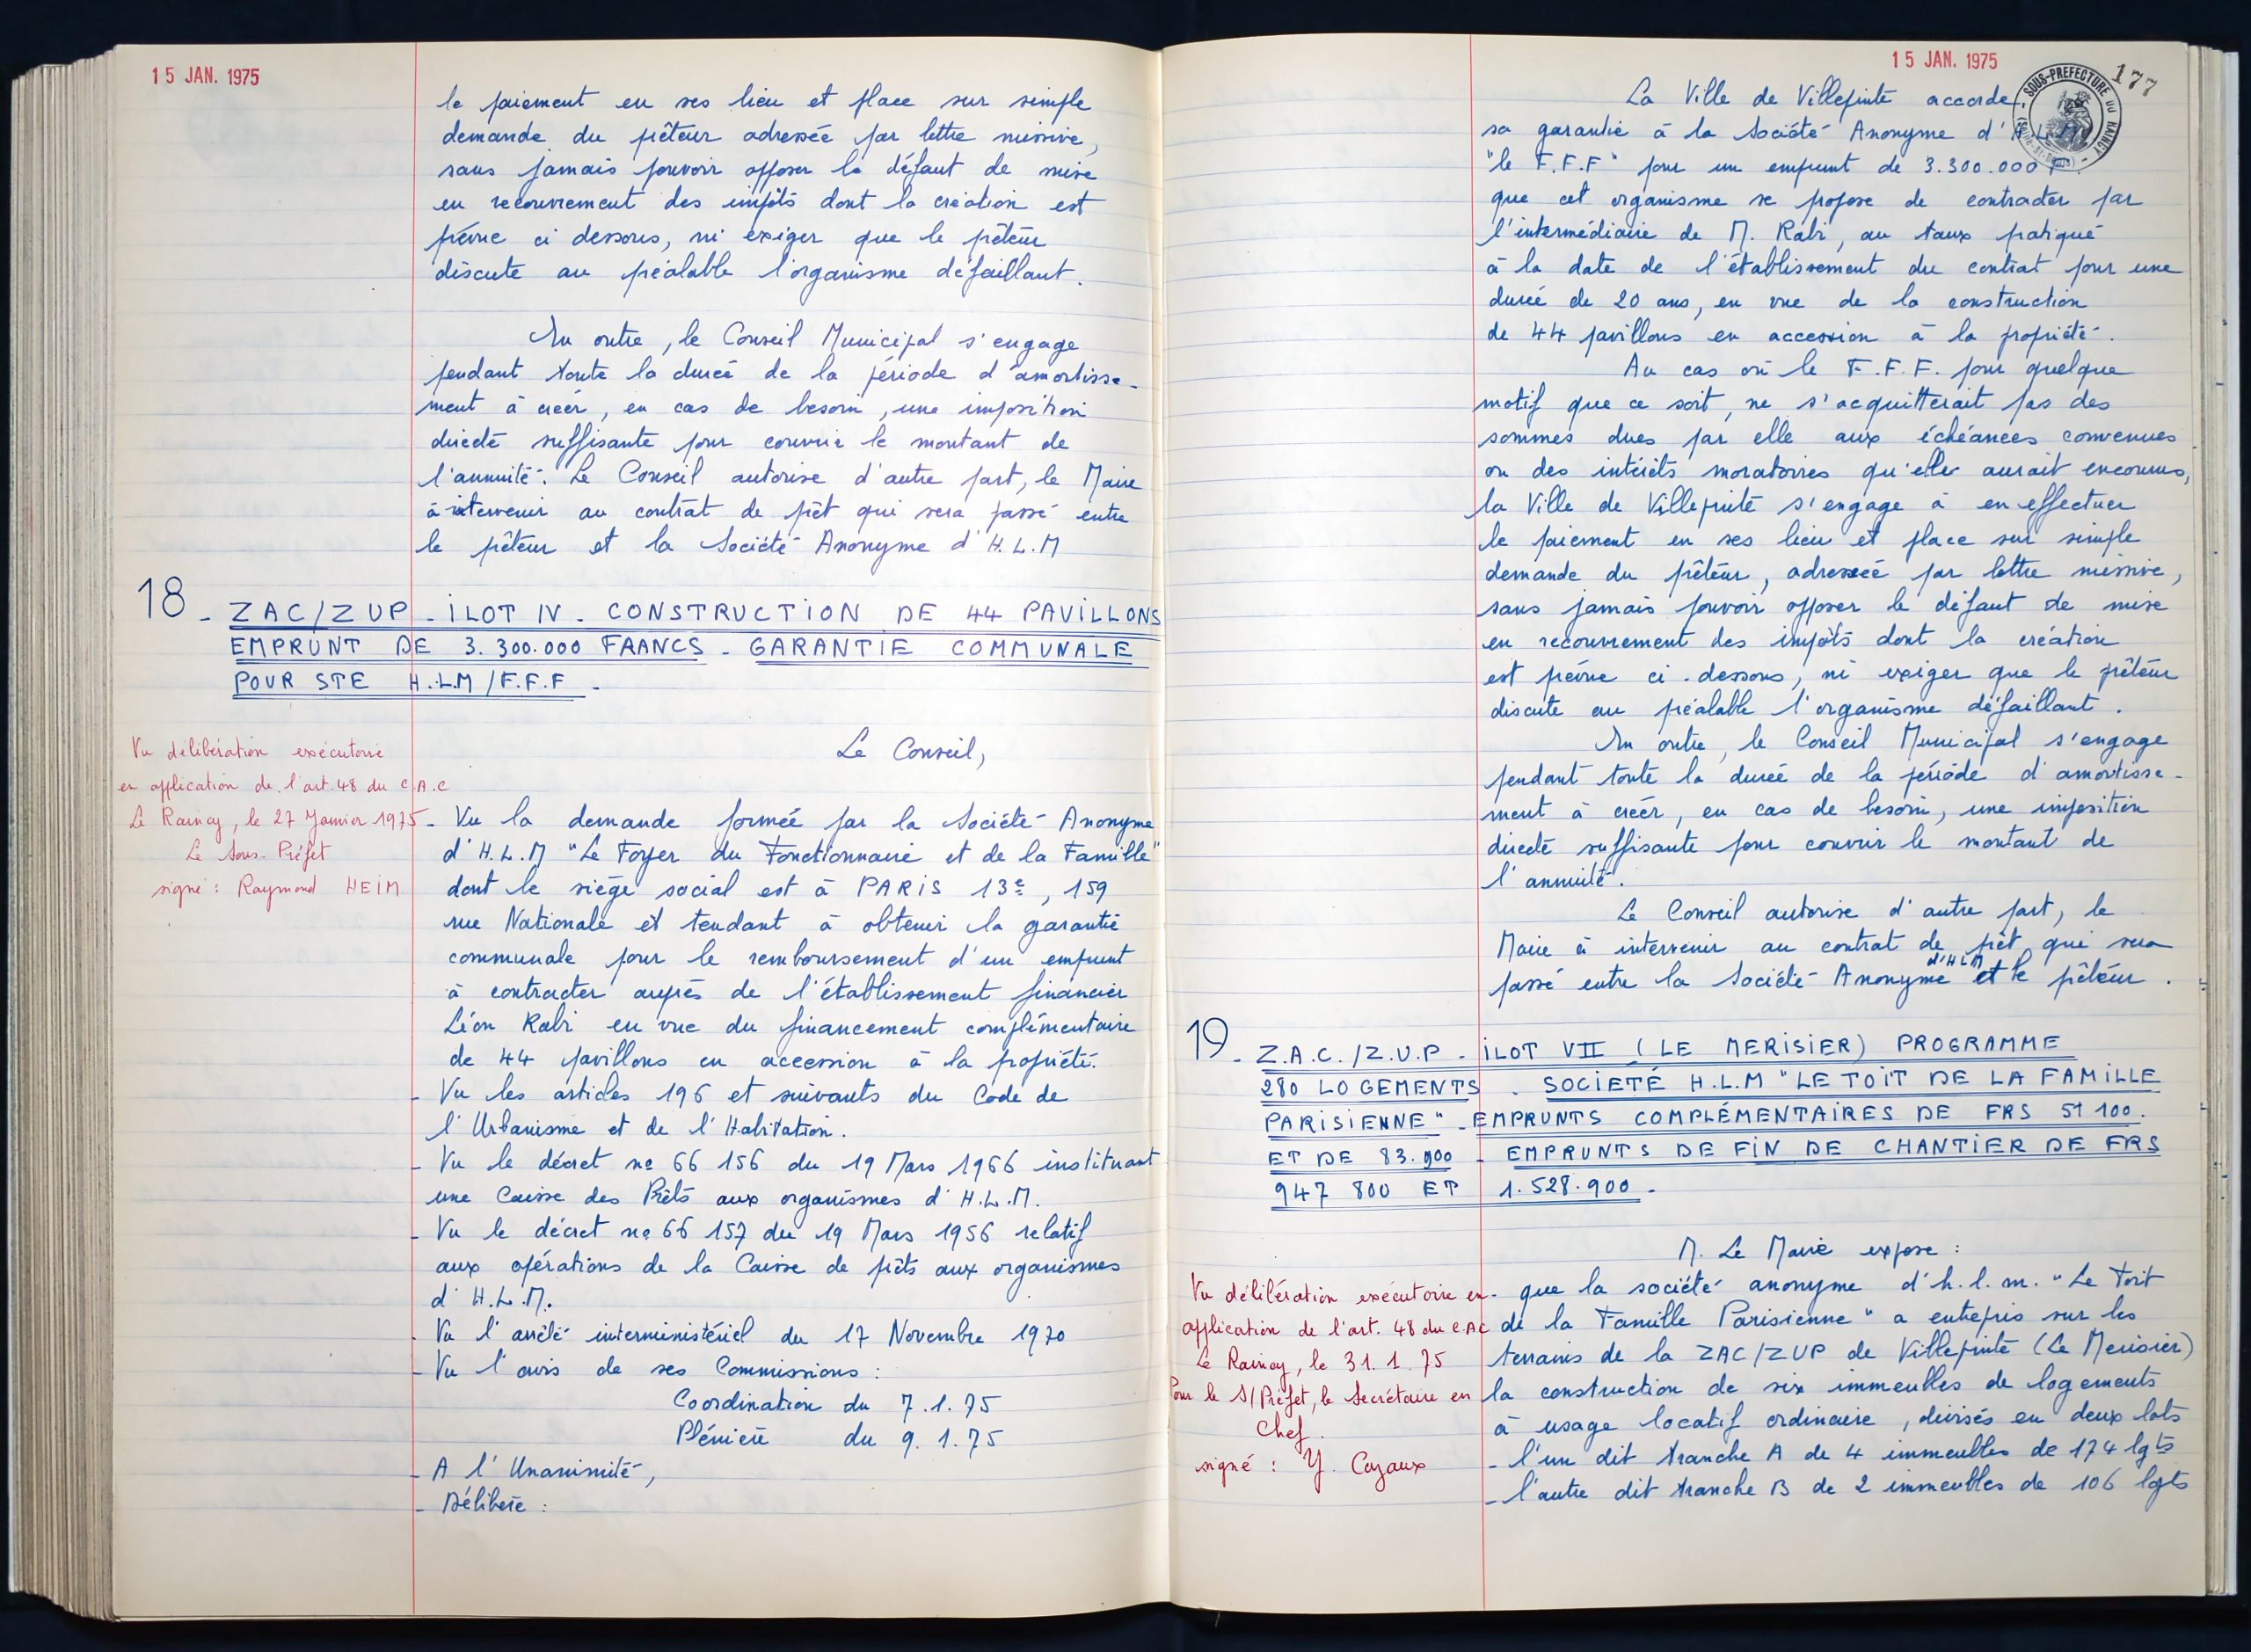 15 JAN. 1975
le paiement en ses lieu et place sur simple
demande du prêteur adressée par lettre missive,
sans jamais pouvoir opposer le défaut de mise
en recouvrement des impôts dont la création est
prévue ci dessous, ni exiger que le prêteur
discute au préalable l'organisme défaillant.
En outre, le Conseil Municipal s'engage
pendant toute la durée de la période d'amortisse-
ment à créer, en cas de besoin, une imposition
directe suffisante pour couvrir le montant de
l'annuité. Le Conseil autorise d'autre part, le Maire
à intervenir au contrat de prêt qui sera passé entre
le prêteur et la Société Anonyme d'H.L.M
18 - ZAC/ZUP - ILOT IV - CONSTRUCTION DE 44 PAVILLONS
EMPRUNT DE 3.300.000 FRANCS - GARANTIE COMMUNALE
POUR STE H.L.M / F.F.F -
Vu délibération exécutoire
en application de l'art. 48 du C.A.C
Le Raincy, le 27 Janvier 1975
Le Sous-Préfet
signé : Raymond HEIM
Le Conseil,
- Vu la demande formée par la Société Anonyme
d'H.L.M "Le Foyer du Fonctionnaire et de la Famille"
dont le siège social est à PARIS 13e, 159
rue Nationale et tendant à obtenir la garantie
communale pour le remboursement d'un emprunt
à contracter auprès de l'établissement financier
Léon Rabi en vue du financement complémentaire
de 44 pavillons en accession à la propriété.
- Vu les articles 196 et suivants du Code de
l'Urbanisme et de l'Habitation.
- Vu le décret no 66 156 du 19 Mars 1966 instituant
une Caisse des Prêts aux organismes d'H.L.M.
- Vu le décret no 66 157 du 19 Mars 1956 relatif
aux opérations de la Caisse de prêts aux organismes
d'H.L.M.
- Vu l'arrêté interministériel du 17 Novembre 1970
- Vu l'avis de ses Commissions :
Coordination du 7.1.75
Plénière du 9.1.75
- A l'Unanimité,
- Délibère :
15 JAN. 1975
177
SOUS-PREFECTURE DU RAINCY
La Ville de Villepinte accorde
sa garantie à la Société Anonyme d'H.L.M
"le F.F.F" pour un emprunt de 3.300.000 F.
que cet organisme se propose de contracter par
l'intermédiaire de M. Rabi, au taux pratiqué
à la date de l'établissement du contrat pour une
durée de 20 ans, en vue de la construction
de 44 pavillons en accession à la propriété.
Au cas où le F.F.F. pour quelque
motif que ce soit, ne s'acquitterait pas des
sommes dues par elle aux échéances convenues
ou des intérêts moratoires qu'elle aurait encourus,
la Ville de Villepinte s'engage à en effectuer
le paiement en ses lieu et place sur simple
demande du prêteur, adressée par lettre missive,
sans jamais pouvoir opposer le défaut de mise
en recouvrement des impôts dont la création
est prévue ci-dessous, ni exiger que le prêteur
discute au préalable l'organisme défaillant.
En outre, le Conseil Municipal s'engage
pendant toute la durée de la période d'amortisse-
ment à créer, en cas de besoin, une imposition
directe suffisante pour couvrir le montant de
l'annuité.
Le Conseil autorise d'autre part, le
Maire à intervenir au contrat de prêt qui sera
passé entre la Société Anonyme d'HLM et le prêteur.
19 - Z.A.C./Z.U.P - ILOT VII (LE MERISIER) PROGRAMME
280 LOGEMENTS - SOCIETÉ H.L.M "LE TOIT DE LA FAMILLE
PARISIENNE" - EMPRUNTS COMPLÉMENTAIRES DE FRS 51 100.
ET DE 83.900 - EMPRUNTS DE FIN DE CHANTIER DE FRS
947 800 ET 1.528.900 -
M. Le Maire expose :
Vu délibération exécutoire en
application de l'art. 48 du C.AC
Le Raincy, le 31.1.75
Pour le S/Préfet, le Secrétaire en
Chef.
signé : Y. Cazaux
- que la société anonyme d'h.l.m. "Le Toit
de la Famille Parisienne" a entrepris sur les
terrains de la ZAC/ZUP de Villepinte (Le Merisier)
la construction de six immeubles de logements
à usage locatif ordinaire, divisés en deux lots
- l'un dit tranche A de 4 immeubles de 174 lgts
- l'autre dit tranche B de 2 immeubles de 106 lgts